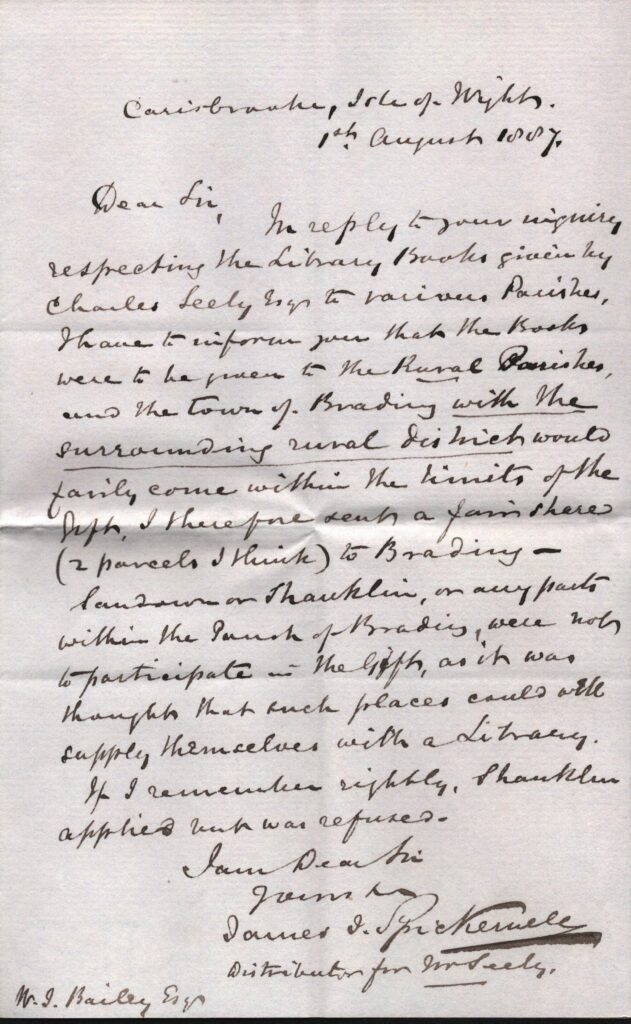 Carisbrooke, Isle of Wight.
1st August 1887.
Dear Sir,
In reply to your inquiry
respecting the Library Books given by
Charles Seely Esqr to various Parishes,
I have to inform you that the Books
were to be given to the Rural Parishes,
and the town of Brading with the
surrounding rural district would
fairly come within the limits of the
Gift, I therefore sent a fair share
(2 parcels I think) to Brading —
Sandown or Shanklin, or any parts
within the Parish of Brading, were not
to participate in the Gift, as it was
thought that such places could well
supply themselves with a Library.
If I remember rightly, Shanklin
applied but was refused.
I am Dear Sir
Yours
James J. Spickernell
Distributor for Mr Seely.
W. J. Bailey Esqr